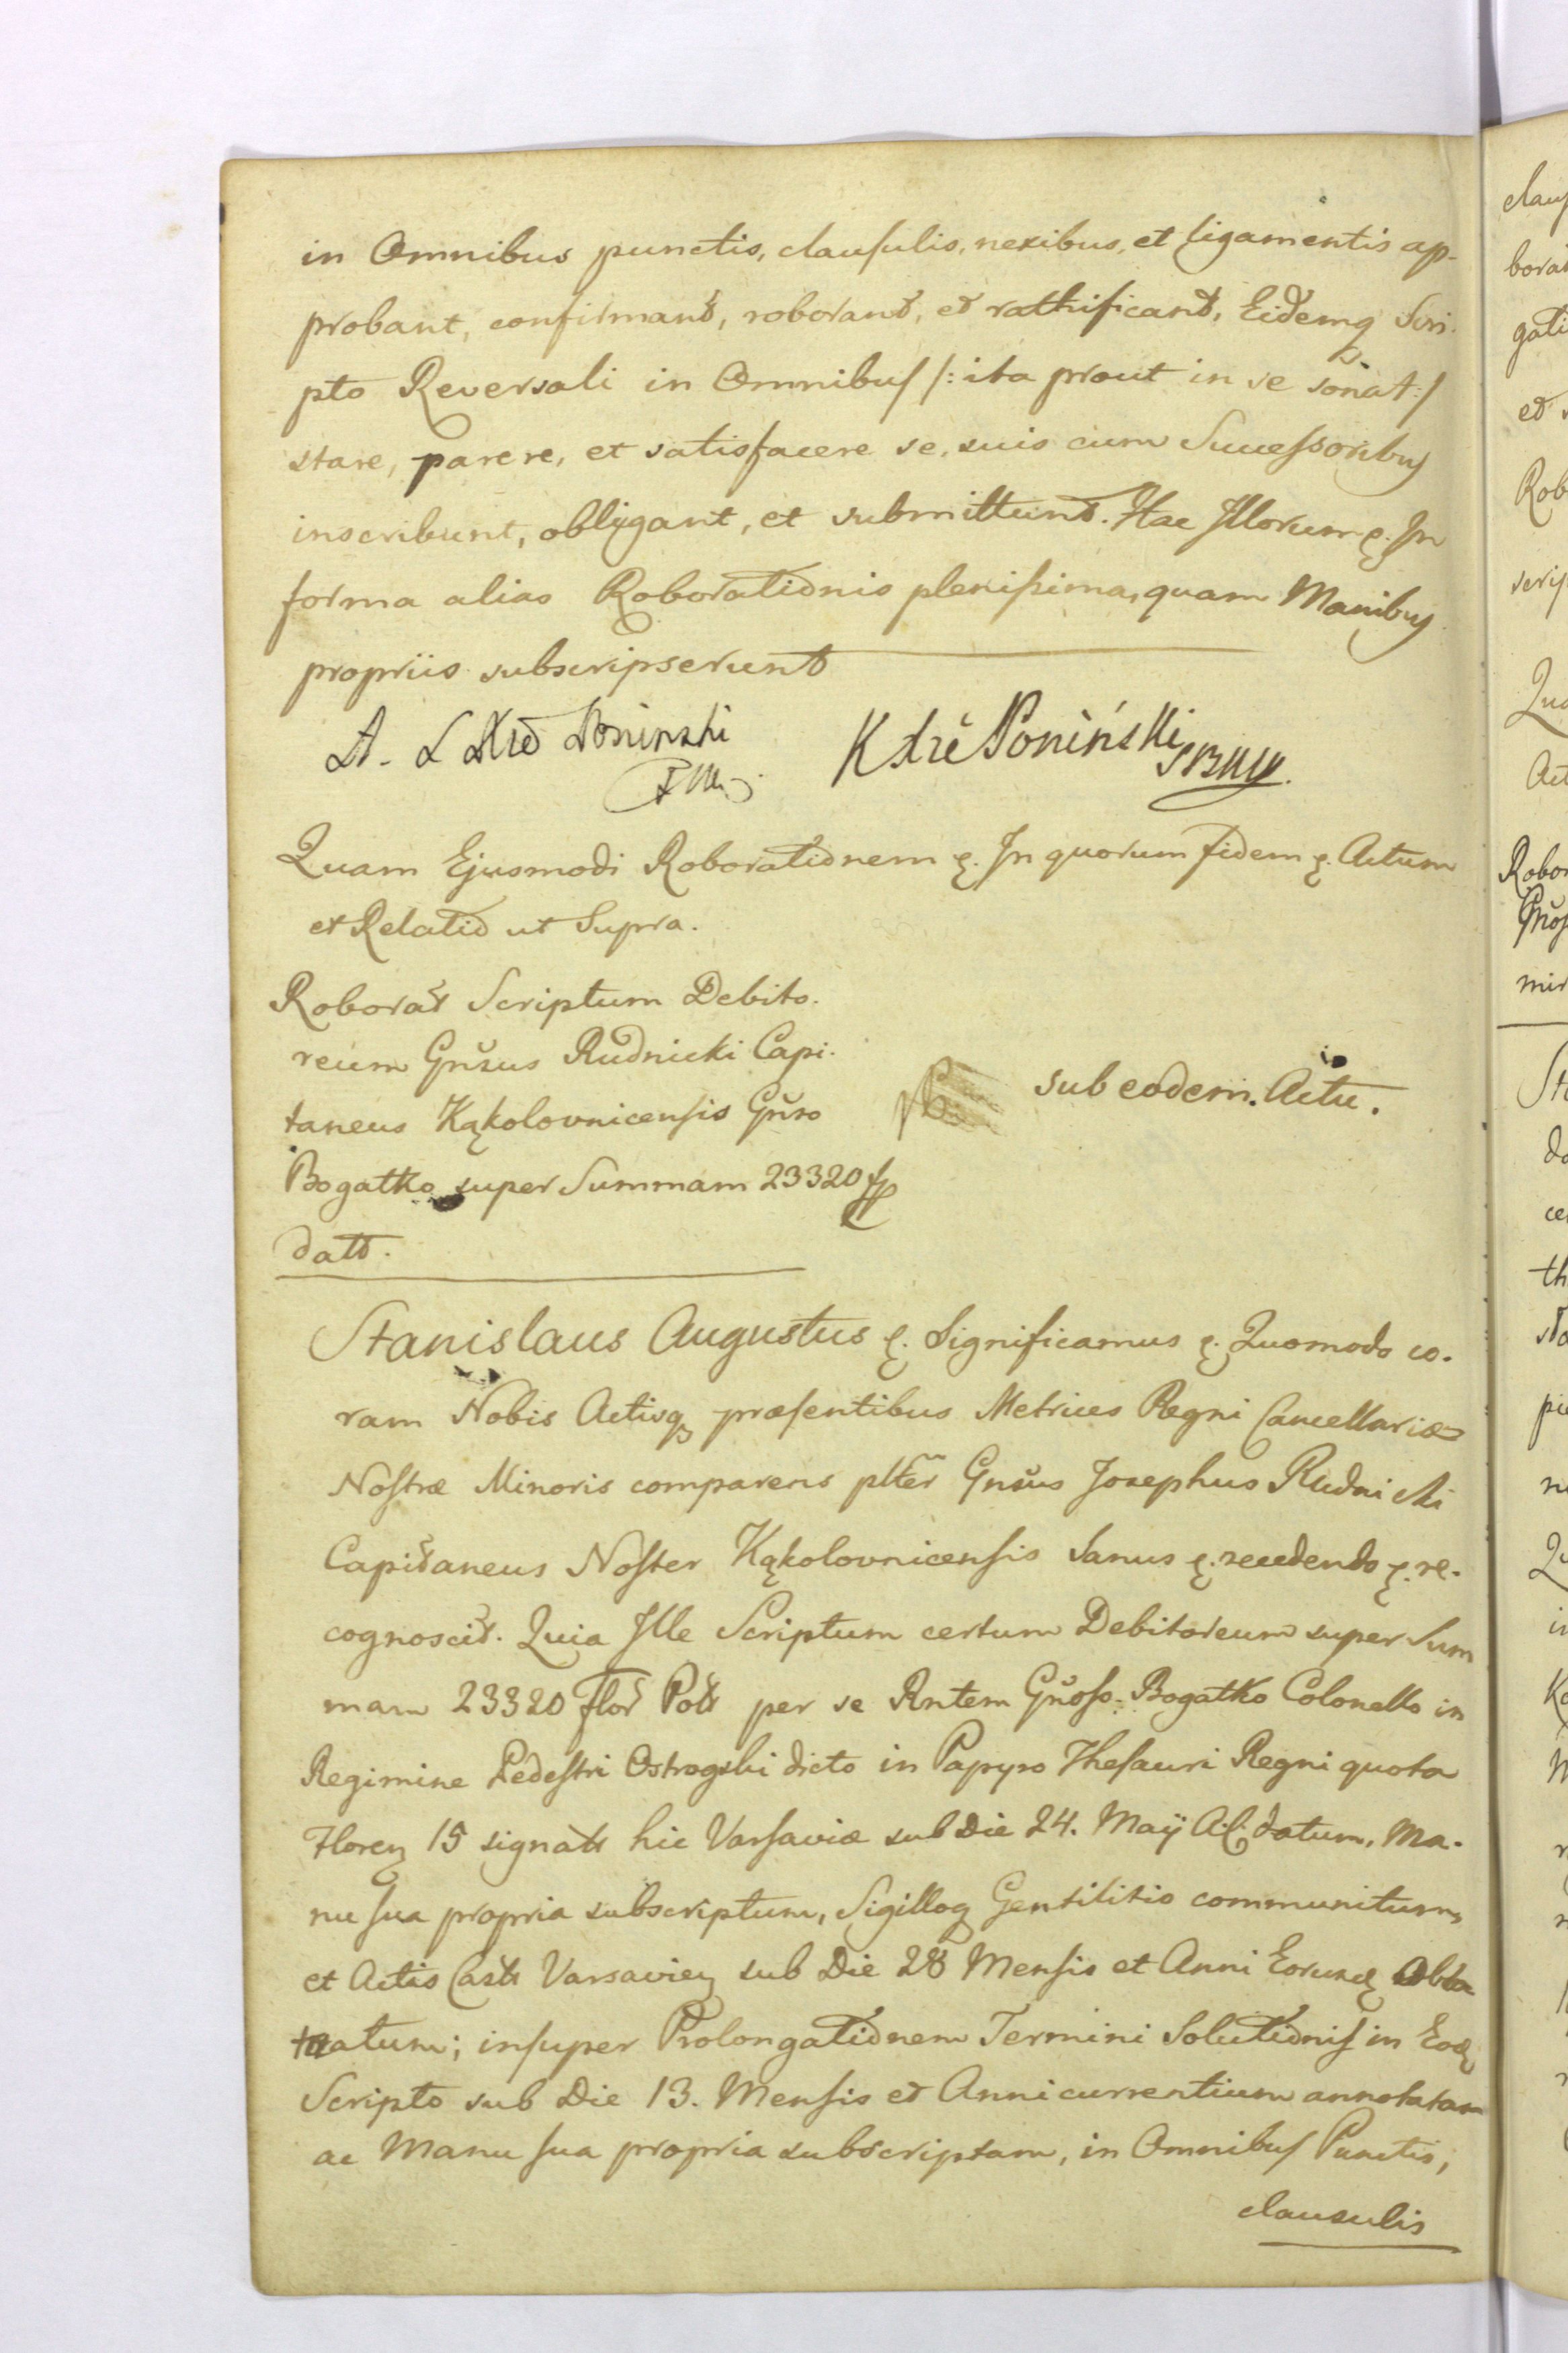 in Omnibus punctis, clausulis, nexibus, et ligamentis ap-
probant, confirmant, roborant, et rathificant, Eidemq Scri-
pto Reversali in Omnibus /: ita prout in se sonat :/
stare, parere, et satisfacere se, suis cum Successoribus
inscribunt, obligant, et submittunt. Hac Illorum ę. In
forma alias Roborationis plenissima, quam Manibus
propriis subscripserunt
A. L Xże Poninski
K Xże Poniński
Quam Ejusmodi Roborationem ę. In quorum fidem ę. Actum
et Relatio ut Supra.
Roborat Scriptum Debito-
reum Gnŝus Rudnicki Capi-
taneus Kąkolovnicensis Gnŝo
Bogatko super Summam 23320 fp
datt.
sub eodem. Actu.
Stanislaus Augustus ę. Significamus ę. Quomodo co-
ram Nobis Actisq præsentibus Metrices Regni Cancellariæ
Nostræ Minoris comparens plter Gnŝus Josephus Rudnicki
Capitaneus Noster Kąkolovnicensis Sanus ę. recedendo ę. re-
cognoscit. Quia Ille Scriptum certum Debitoreum super Sum
mam 23320 flor Poll per se Rntem Gnoso Bogatko Colonello in
Regimine Pedestri Ostrogski dicto in Papyro Thesauri Regni quota
Floren 15 signati hic Varsaviæ sub Die 24. Maÿ A. C. datum, Ma-
nu sua propria subscriptum, Sigilloq Gentilitio communitum,
et Actis Castr Varsavien sub Die 28 Mensis et Anni Eorund Obla
tatum; insuper Prolongationem Termini Solutionis in Eod
Scripto sub Die 13. Mensis et Anni currentium annotatam
ac Manu sua propria subscriptam, in Omnibus Punctis,
clausulis